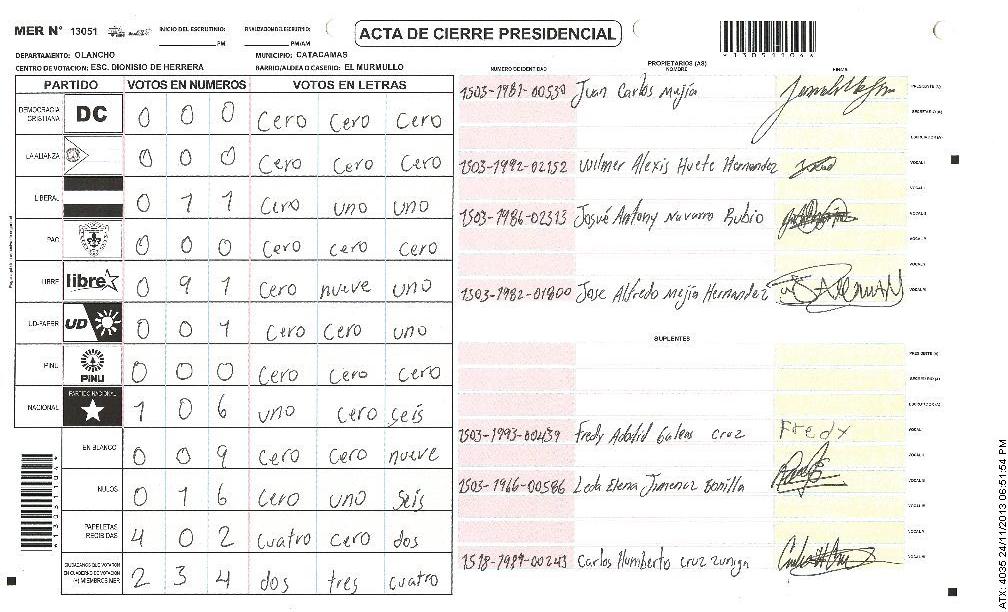 MER N° 13051 INICIO DEL ESCRUTINIO: PM FINALIZACION DEL ESCRUTINIO: PM/AM
ACTA DE CIERRE PRESIDENCIAL
DEPARTAMENTO: OLANCHO MUNICIPIO: CATACAMAS
CENTRO DE VOTACION: ESC. DIONISIO DE HERRERA BARRIO/ALDEA O CASERIO: EL MURMULLO
PARTIDO VOTOS EN NUMEROS VOTOS EN LETRAS
DEMOCRACIA CRISTIANA DC 0 0 0 Cero Cero Cero
LA ALIANZA 0 0 0 Cero Cero Cero
LIBERAL 0 1 1 Cero uno uno
PAC 0 0 0 Cero cero cero
LIBRE libre 0 9 1 Cero nueve uno
UD-FAPER UD 0 0 1 Cero Cero uno
PINU PINU 0 0 0 Cero Cero Cero
NACIONAL PARTIDO NACIONAL 1 0 6 uno cero seis
EN BLANCO 0 0 9 Cero Cero nueve
NULOS 0 1 6 Cero uno seis
PAPELETAS RECIBIDAS 4 0 2 cuatro cero dos
CIUDADANOS QUE VOTARON EN CUADERNO DE VOTACION (+) MIEMBROS MER 2 3 4 dos tres cuatro
NUMERO DE IDENTIDAD PROPIETARIOS (AS) NOMBRE FIRMA
1503-1981-00530 Juan Carlos Mejia PRESIDENTE (A)
SECRETARIO (A)
ESCRUTADOR (A)
1503-1992-02152 Wilmer Alexis Huete Hernandez VOCAL I
VOCAL II
1503-1986-02313 Josué Antony Navarro Rubio VOCAL III
VOCAL IV
VOCAL V
1503-1982-01800 Jose Alfredo Mejia Hernandez VOCAL VI
SUPLENTES
PRESIDENTE (A)
SECRETARIO (A)
ESCRUTADOR (A)
1503-1993-00439 Fredy Adalid Galeas cruz Fredy VOCAL I
VOCAL II
1503-1966-00586 Leda Elena Jimenez Bonilla VOCAL III
VOCAL IV
VOCAL V
1518-1987-00243 Carlos Humberto cruz zuniga VOCAL VI
ATX: 4035 24/11/2013 06:51:54 PM